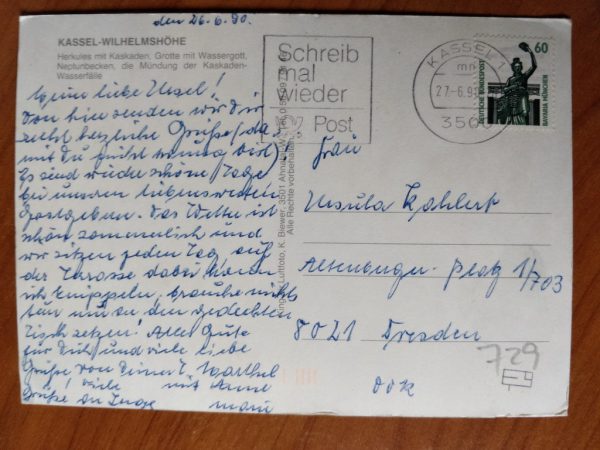 den 26.6.90.
KASSEL-WILHELMSHÖHE
Herkules mit Kaskaden, Grotte mit Wassergott,
Neptunbecken, die Mündung der Kaskaden-
Wasserfälle
Meine liebe Ursel!
Von hier senden wir Dir
recht herzliche Grüße (da
mit Du nicht
Es sind wieder schöne Tage
bei unseren liebenswerten
Gastgebern. Das Wetter ist
schön sommerlich und
wir sitzen jeden Tag auf
der Terrasse dabei kann
ich knippeln, brauche nichts
tun nur an den gedeckten
Tisch setzen! Alles Gute
für Dich und viele liebe
Grüße von Deiner
! Viele mit Anne
Grüße an Inge marie
Schreib
mal
wieder
Post
KASSEL 1
mn
27.-6.90
3500
60
DEUTSCHE BUNDESPOST
BAVARIA MÜNCHEN
Luftfoto, K. Brewer, 3501 Ahnatal
Alle Rechte vorbehalten
Frau
Ursula Kahlert
Altenberger-Platz 1/703
8021 Dresden
729